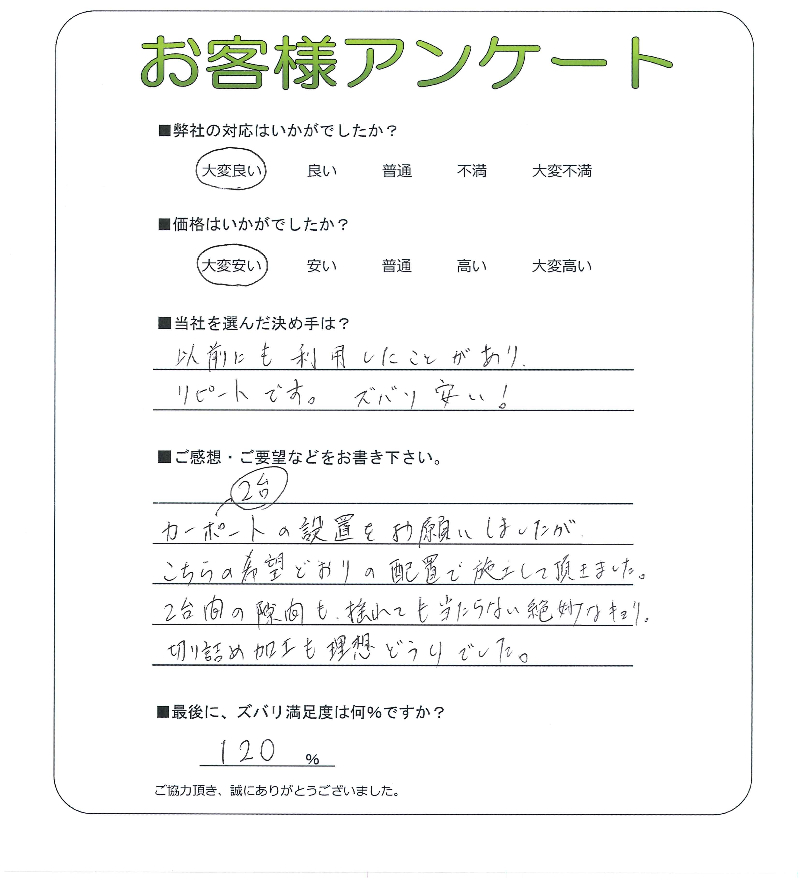 お客様アンケート
■弊社の対応はいかがでしたか？
大変良い 良い 普通 不満 大変不満
■価格はいかがでしたか？
大変安い 安い 普通 高い 大変高い
■当社を選んだ決め手は？
以前にも利用したことがあり、
リピートです。 ズバリ安い！
■ご感想・ご要望などをお書き下さい。
2台
カーポートの設置をお願いしましたが、
こちらの希望どおりの配置で施工して頂きました。
2台間の隙間も、揺れても当たらない絶妙なキョリ。
切り詰め加工も理想どうりでした。
■最後に、ズバリ満足度は何％ですか？
120 ％
ご協力頂き、誠にありがとうございました。